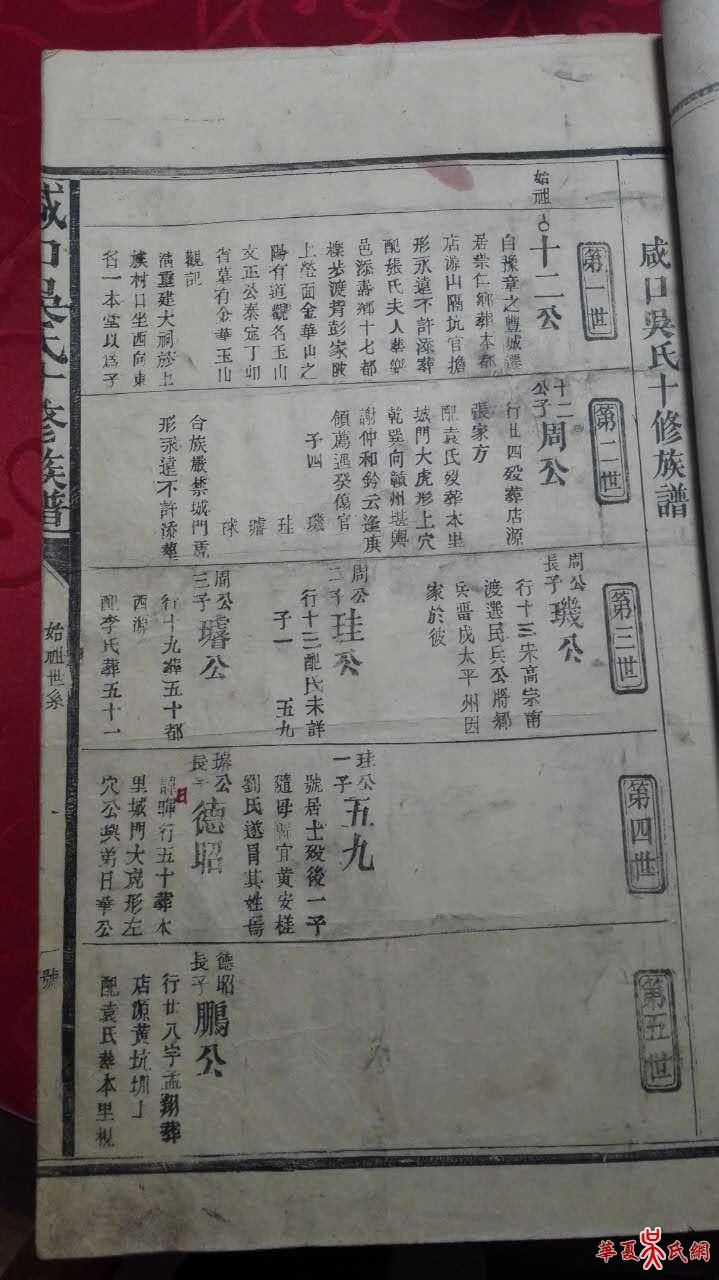 咸口吳氏十修族譜
第一世
始祖
十二公
自豫章之豐城遷
居崇仁鄉葬本都
店源山隔坑官擔
形永遠不許添葬
配張氏夫人葬安
邑添壽鄉十七都
櫟步渡背彭家陂
上塋面金華山之
陽有道觀名玉山
文正公秦定丁卯
省墓有金華玉山
觀記
清重建大祠於上
族村口坐西向東
名一本堂以爲子
第二世
十二公子
周公
行廿四歿葬店源
張家方
配袁氏歿葬本里
城門大虎形上穴
乾巽向贛州堪輿
謝仲和鈐云逢庚
領薦遇癸傷官
子四
璣 珪 璿 球
合族嚴禁城門虎
形永遠不許添葬
第三世
周公長子
璣公
行十三宋高宗南
渡選民兵公將鄉
兵晋戍太平州因
家於彼
周公二子
珪公
行十三配氏未詳
子一 五九
周公三子
璿公
行十九葬五十都
西源
配李氏葬五十一
第四世
珪公一子
五九
號居士歿後一子
隨母歸宜黃安槎
劉氏遂冒其姓焉
璿公長子
德昭
諱暉行五十葬本
里城門大虎形左
穴公與弟日華公
第五世
德昭長子
鵬公
行廿八字孟翔葬
店源黃坑圳
配袁氏葬本里
咸口吳氏十修族譜
始祖世系
一號
華夏吳氏網